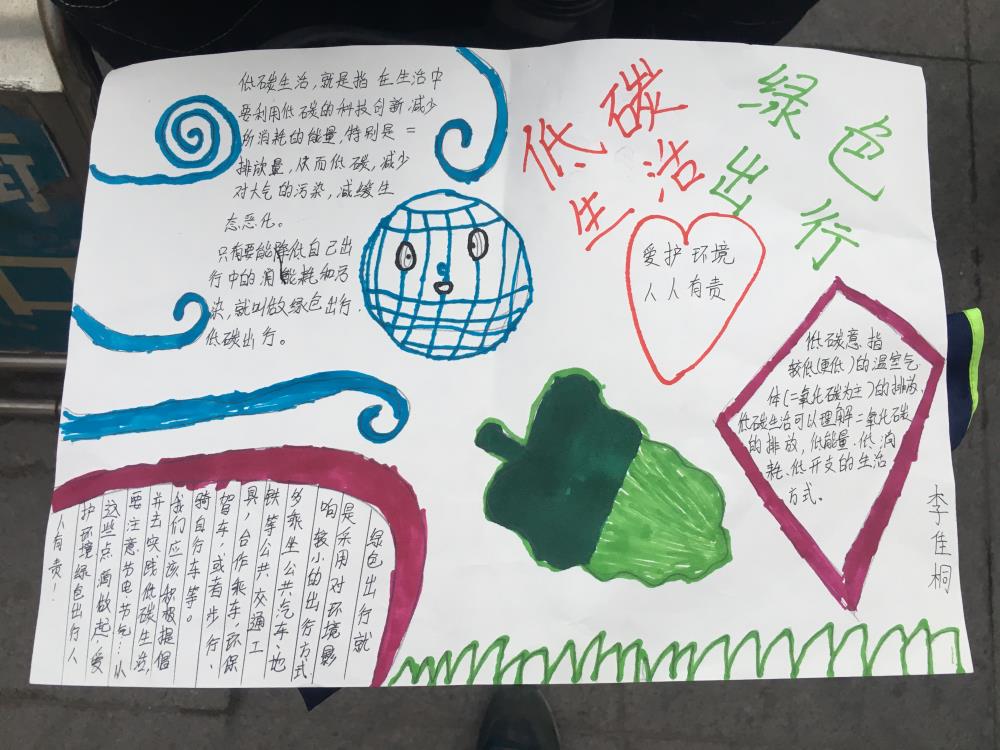 低碳生活
绿色出行
低碳生活,就是指 在生活中
要利用低碳的科技创新,减少
所消耗的能量,特别是 二
排放量,从而低碳,减少
对大气的污染,减缓生
态恶化。
只有要能降低自己出
行中的消能耗和污
染,就叫做绿色出行.
低碳出行。
爱护环境
人人有责
低碳意指
较低(更低)的温室气
体(二氧化碳为主)的排放,
低碳生活可以理解二氧化碳
的排放,低能量.低消
耗、低开支的生活
方式。
李佳桐
绿色出行就
是采用对环境影
响较小的出行方式
多乘坐公共汽车、地
铁等公共交通工
具,合作乘车,环保
驾车,或者步行、
骑自行车等。
我们应该积极提倡
并去实践低碳生活,
要注意节电节气…从
这些点滴做起.爱
护环境绿色出行人
人有责!
街